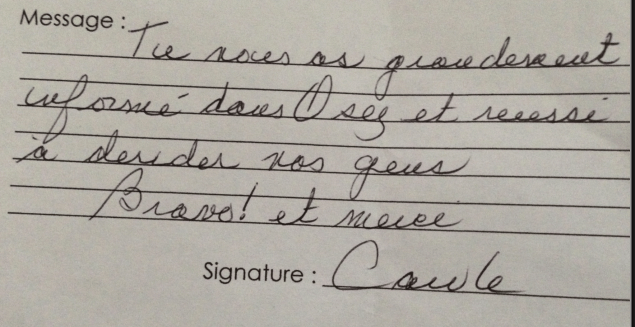 Message : Tu nous as grandement
informé dans Osez et reussi
à derider nos gens
Bravo! et merci
Signature : Carole